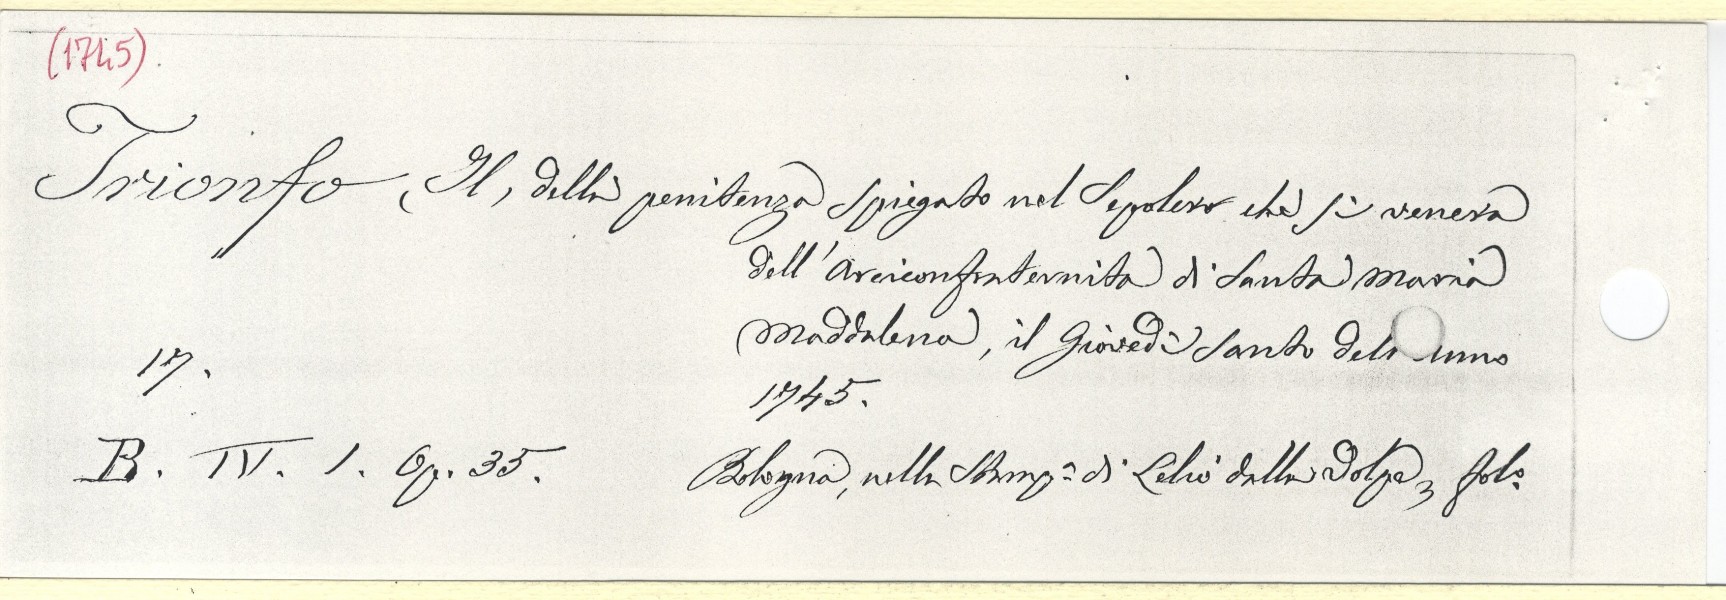 (1745).
Trionfo, Il, della penitenza spiegato nel Sepolcro che si venera
"
dell'Arciconfraternita di Santa Maria
Maddalena, il Giovedì Santo dell' anno
17.
1745.
B. IV. 1. Op. 35. Bologna, nella Stampª di Lelio dalla Volpe, folº